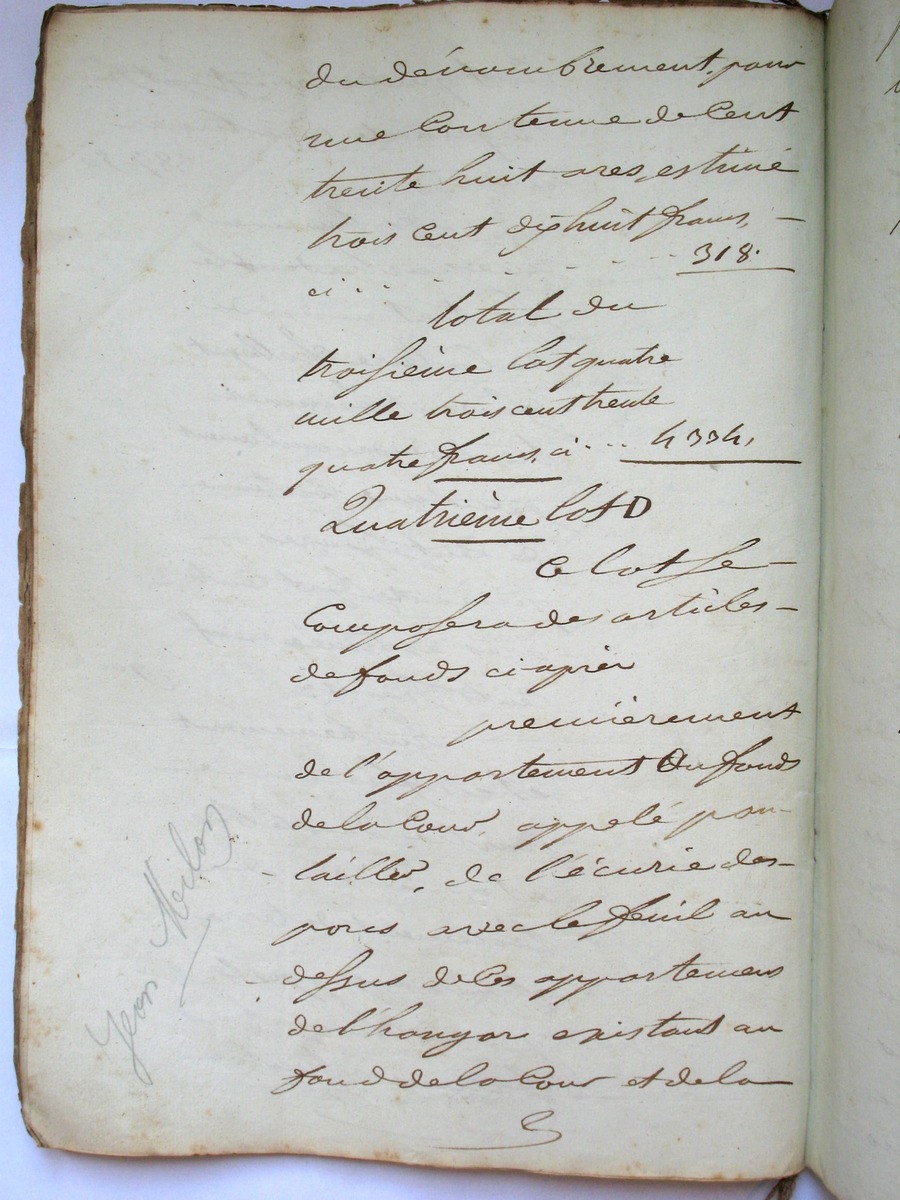 du dénombrement, pour
une Contenue de Cent
trente huit ares, estimé
trois Cent dixhuit francs, —
ci . . . . . . . . 318.
total du
troisième lot quatre
mille trois cent trente
quatre francs, ci . . . 4334,
Quatrième lot D
Ce lot se —
Composera des articles —
de fonds ci après
premièrement
de l'appartement Au fonds
de la Cour, appelé pou-
lailler, de l'écurie des —
porcs avec le feuil au
dessus de Ces appartemens
de l'hangar existant au
fond de la Cour et de la
Jean Milon